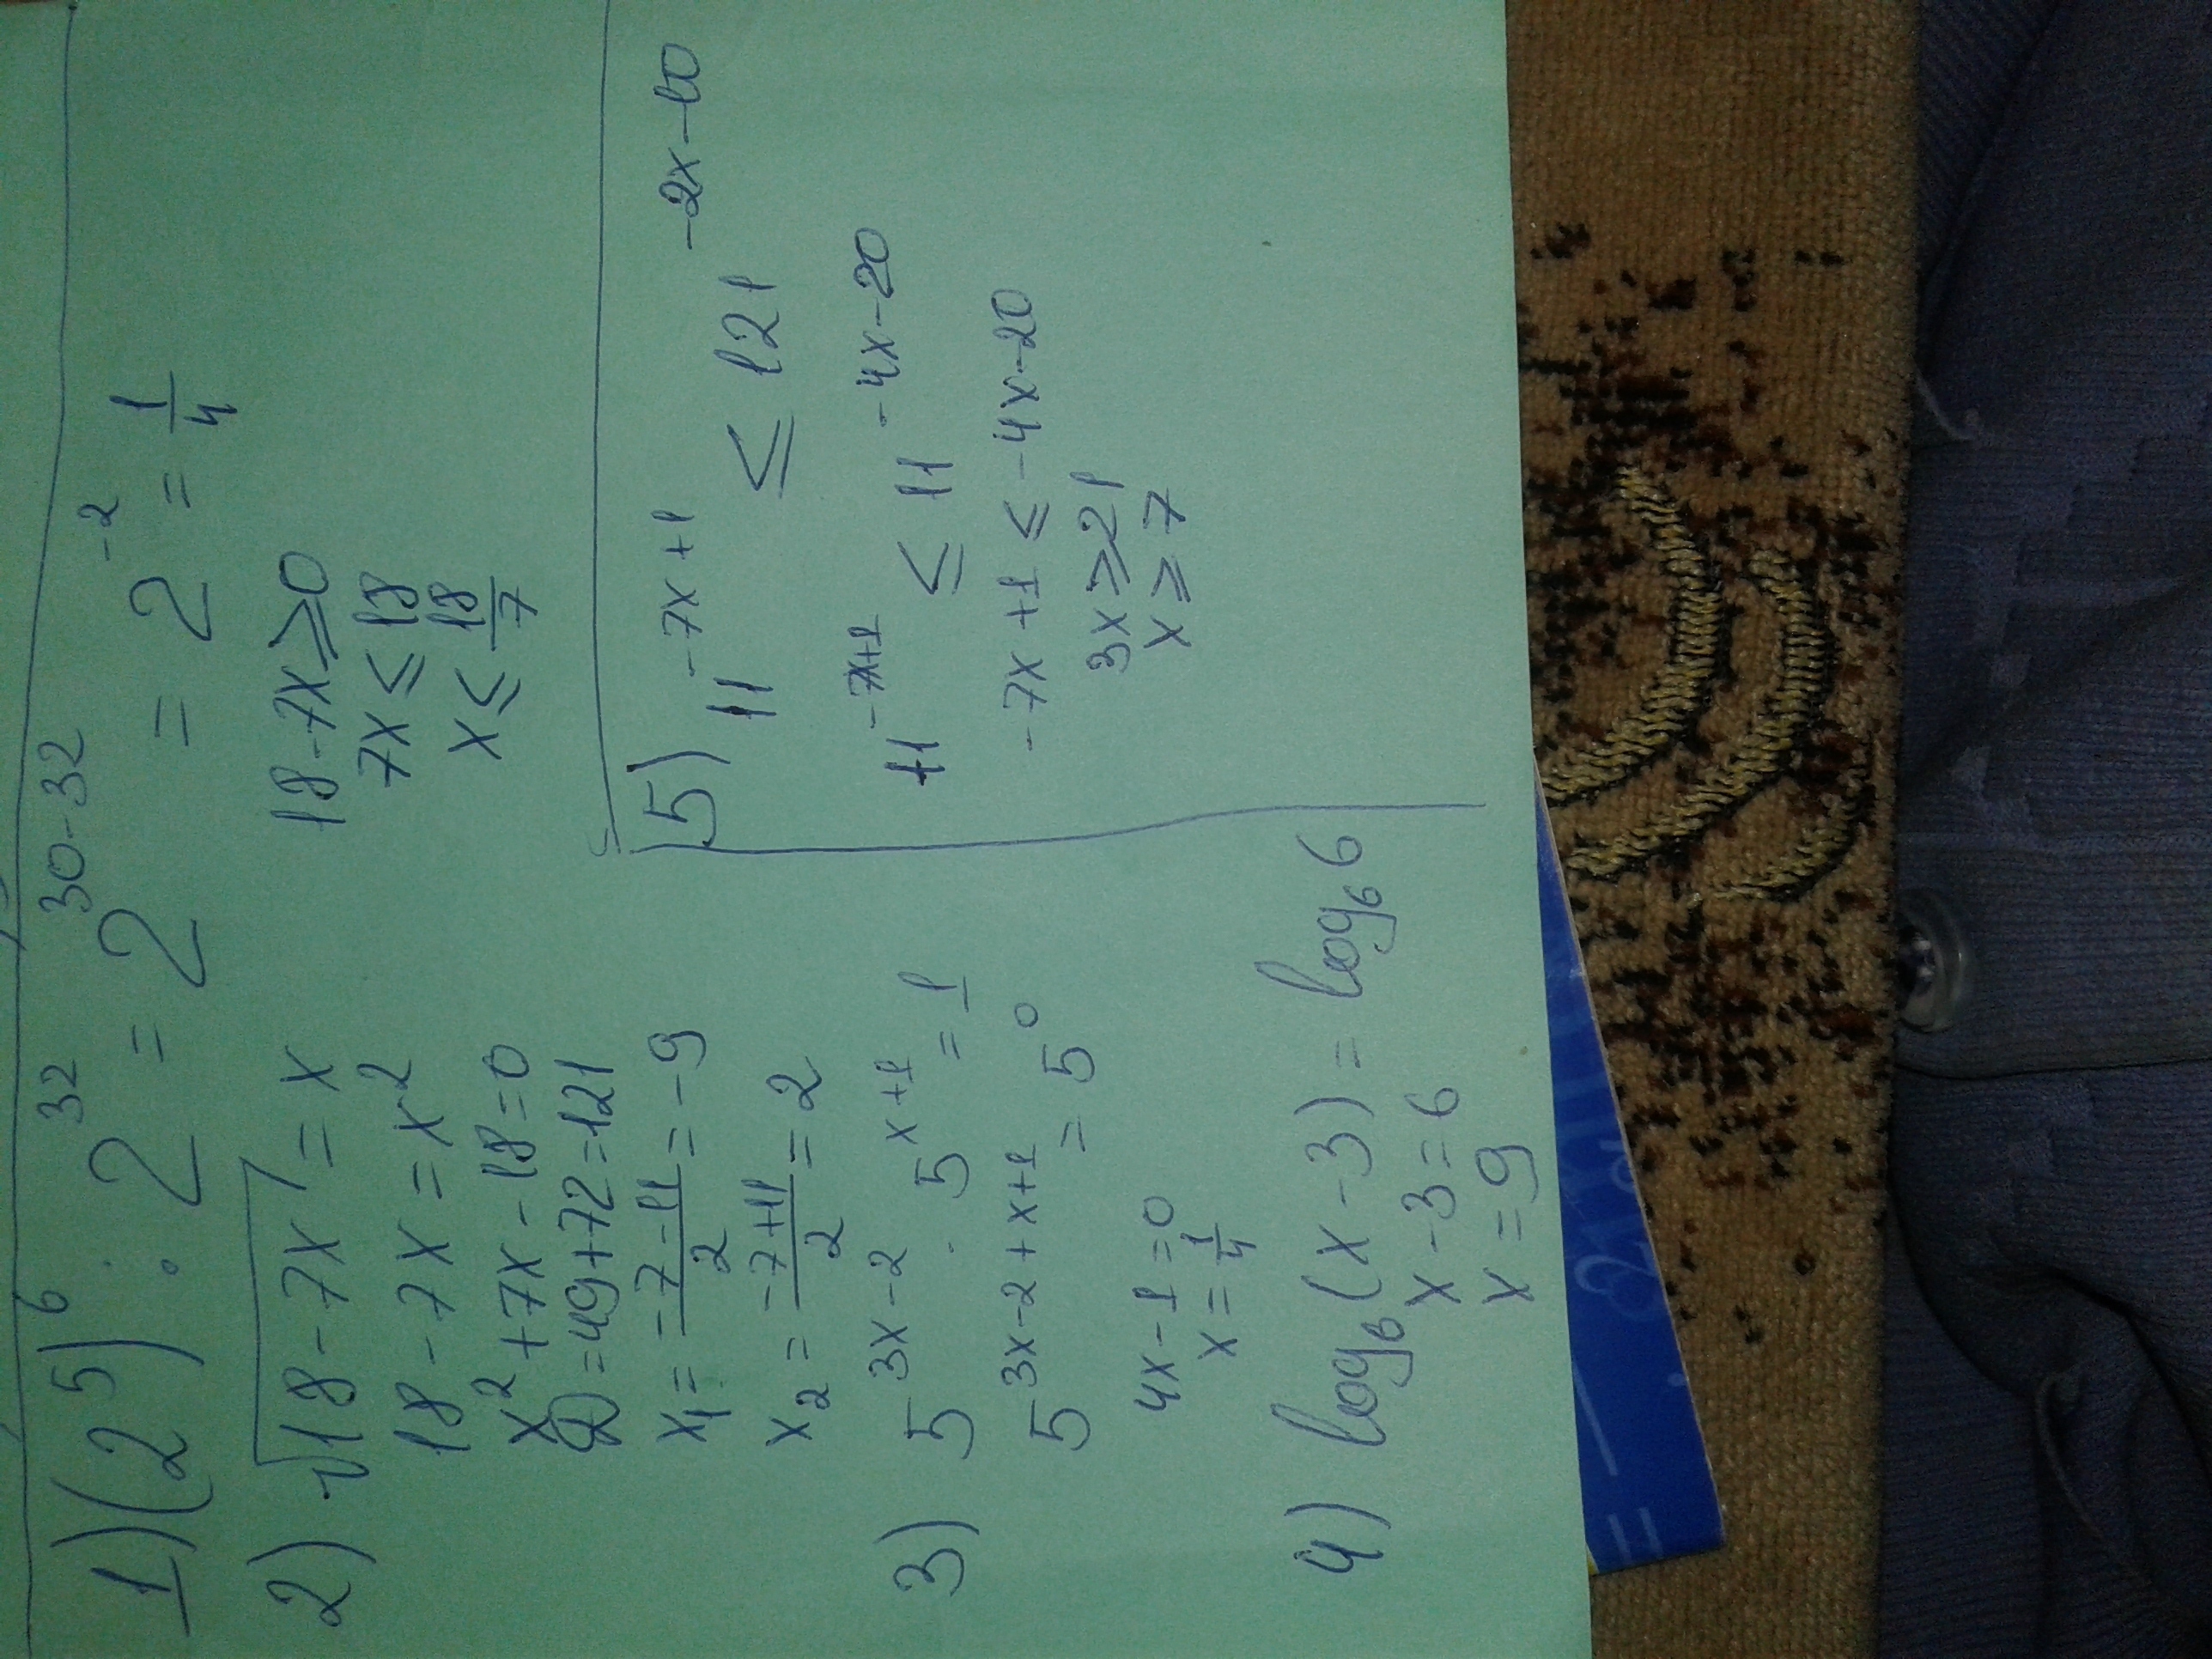 1) (2⁵)⁶ : 2³² = 2³⁰⁻³² = 2⁻² = 1/4
2) √(18-7x) = x
18-7x = x²
x²+7x-18=0
D=49+72=121
x₁ = (-7-11)/2 = -9
x₂ = (-7+11)/2 = 2
18-7x ≥ 0
7x ≤ 18
x ≤ 18/7
3) 5^(3x-2) · 5^(x+1) = 1
5^(3x-2+x+1) = 5^0
4x-1=0
x = 1/4
4) log₆(x-3) = log₆6
x-3=6
x=9
5) 11^(-7x+1) ≤ 121^(-2x-10)
11^(-7x+1) ≤ 11^(-4x-20)
-7x+1 ≤ -4x-20
3x ≥ 21
x ≥ 7